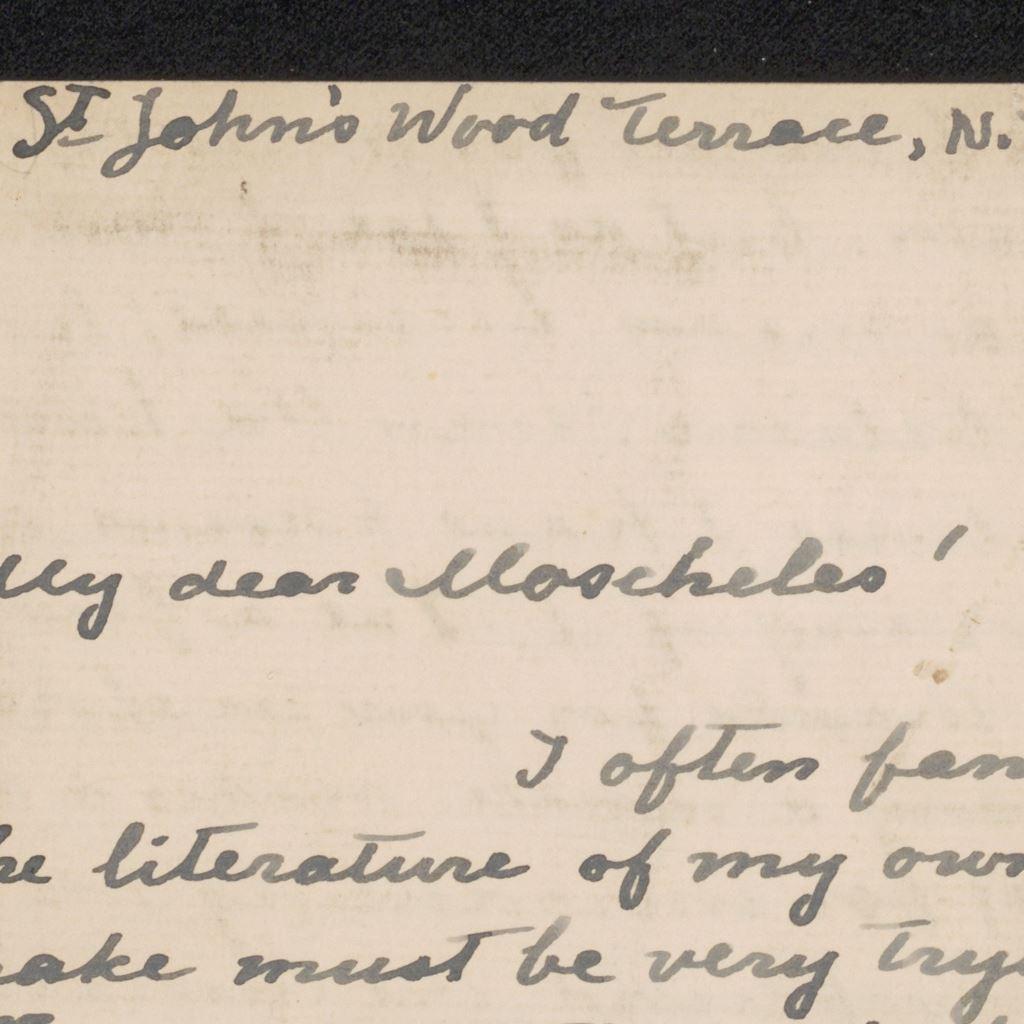 St John's Wood Terrace, N.
My dear Moscheles'
I often fan
he literature of my own
ake must be very try